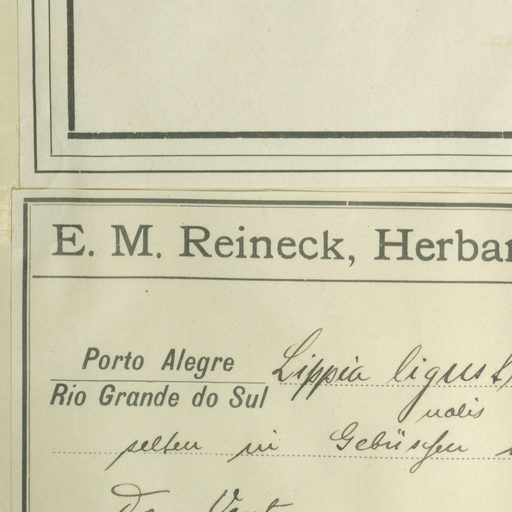 E. M. Reineck, Herbar
Porto Alegre
Rio Grande do Sul
Lippia ligust
nalis
selten in Gebüschen